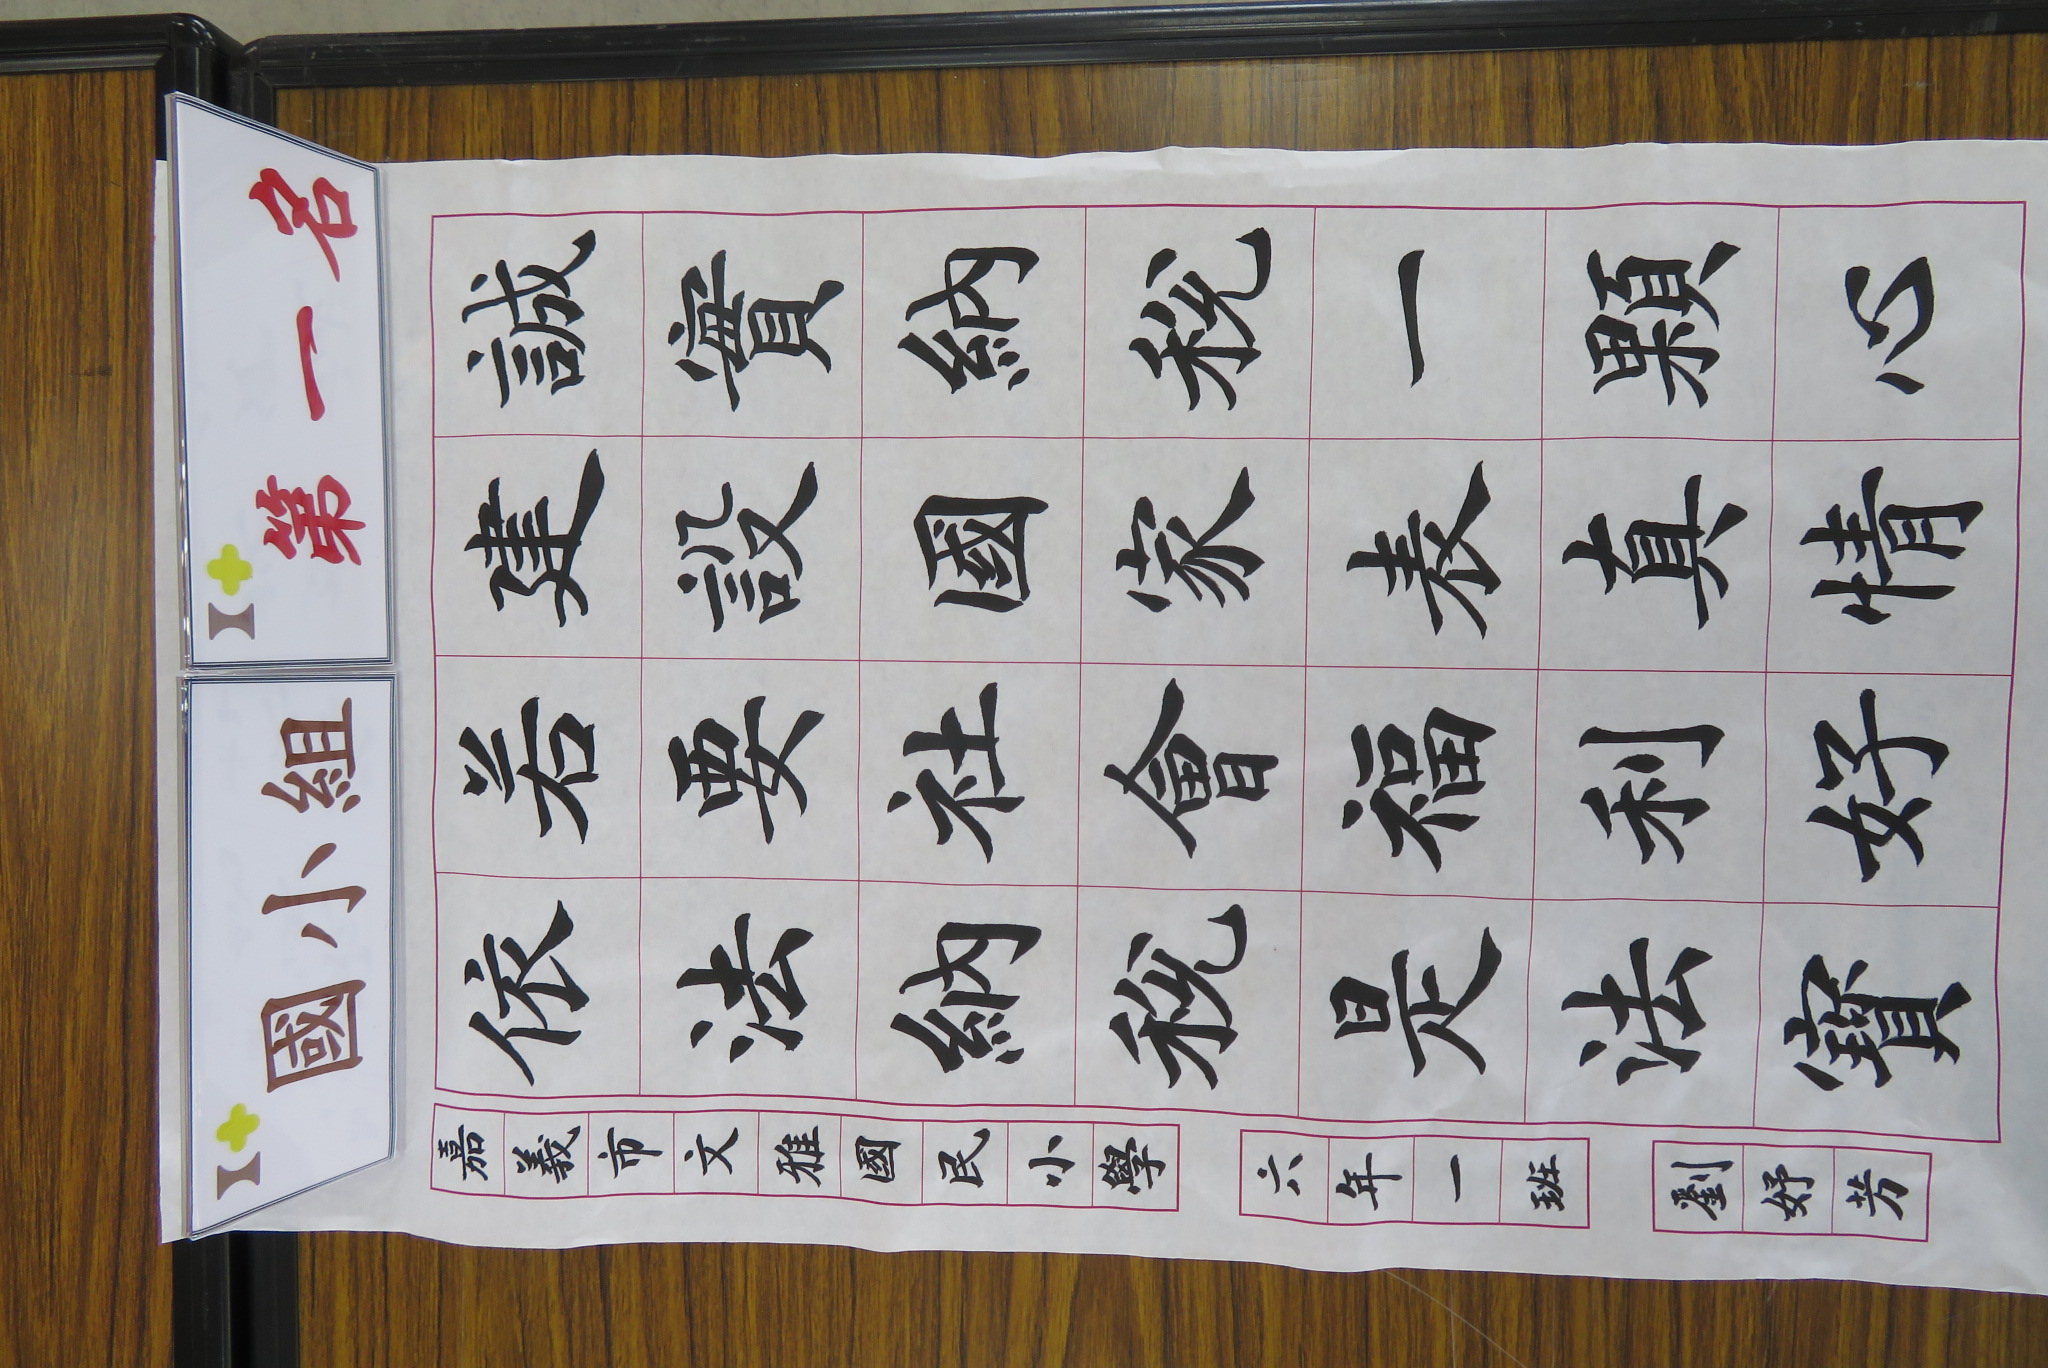 國小組
第一名
誠實納稅一顆心
建設國家表真情
若要社會福利好
依法納稅是法寶
嘉義市文雅國民小學
六年一班
劉妤芳